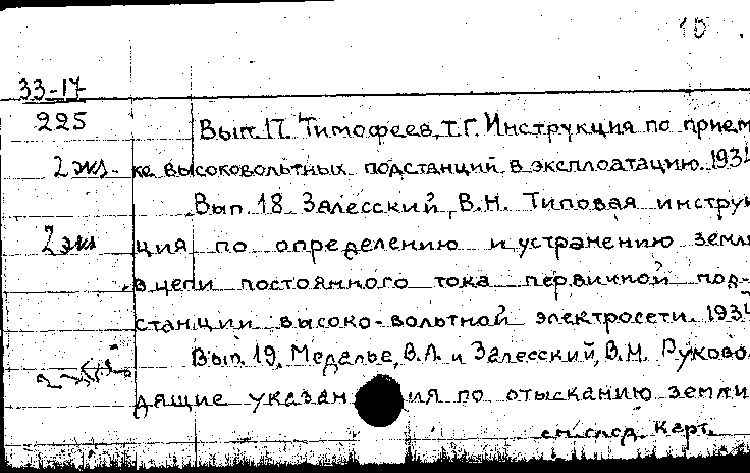 10
33-17
225 Вып.17. Тимофеев, Т.Г. Инструкция по прием
2 экз. ке высоковольтных подстанций в эксплоатацию. 193
Вып. 18. Залесский, В.Н. Типовая инструк
2 экз ция по определению и устранению земли
в цепи постоянного тока первичной под-
станции высоко-вольтной электросети. 193
Вып. 19. Медалье, В.А. и Залесский, В.Н. Руково
дящие указания по отысканию земли
см. след. карт.